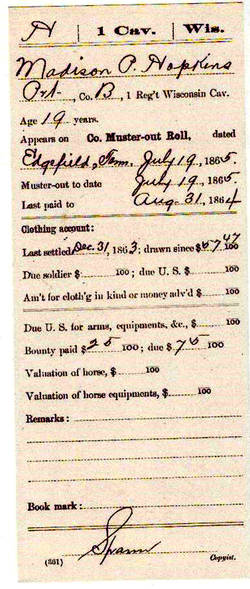 H | 1 Cav. | Wis.
Madison P. Hopkins
Pvt., Co. B, 1 Reg't Wisconsin Cav.
Age 19 years.
Appears on Co. Muster-out Roll, dated
Edgefield, Tenn. July 19, 1865.
Muster-out to date July 19, 1865.
Last paid to Aug. 31, 1864.
Clothing account:
Last settled Dec. 31, 1863; drawn since $ 67 47/100
Due soldier $ 100; due U. S. $ 100
Am't for cloth'g in kind or money adv'd $ 100
Due U. S. for arms, equipments, &c., $ 100
Bounty paid $ 25 100; due $ 75 100
Valuation of horse, $ 100
Valuation of horse equipments, $ 100
Remarks:
Book mark:
Spann
(361) Copyist.